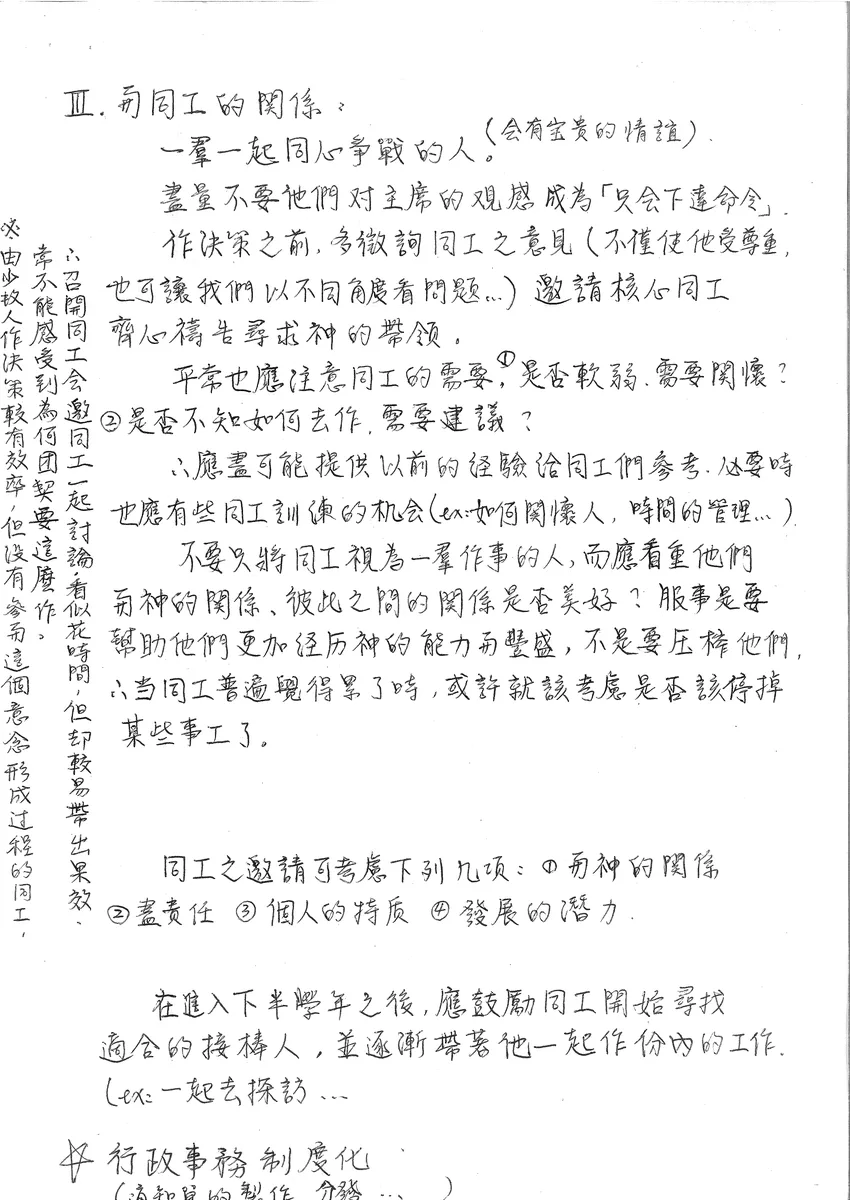 III. 与同工的關係：
一羣一起同心争戰的人。(会有宝贵的情誼).
盡量不要他們对主席的观感成為「只会下達命令」.
作决策之前，多徵詢同工之意見(不僅使他受尊重,
也可讓我們以不同角度看問題...) 邀請核心同工
齊心禱告尋求神的帶领。
平常也應注意同工的需要，①是否軟弱、需要関懷？
②是否不知如何去作，需要建議？
∴應盡可能提供以前的经驗给同工們參考．必要時
也應有些同工訓練的机会(ex:如何関懷人，時間的管理...)
不要只將同工視為一羣作事的人,而應看重他們
与神的関係、彼此之間的関係是否美好？服事是要
幫助他們更加经历神的能力与豐盛，不是要压榨他們,
∴当同工普遍覺得累了時，或許就該考慮是否該停掉
某些事工了。
※由少数人作决策較有效率,但没有参与這個意念形成过程的同工,
常不能感受到為何团契要這麽作。
∴召開同工会邀同工一起討論,看似花時間,但却較易帶出果效、
同工之邀請可考慮下列几项：①与神的関係
②盡責任 ③個人的特质 ④發展的潛力.
在進入下半學年之後，應鼓勵同工開始尋找
適合的接棒人，並逐漸帶著他一起作份內的工作.
(ex:一起去探訪...
☆ 行政事務制度化
(通知單的製作、分發... )